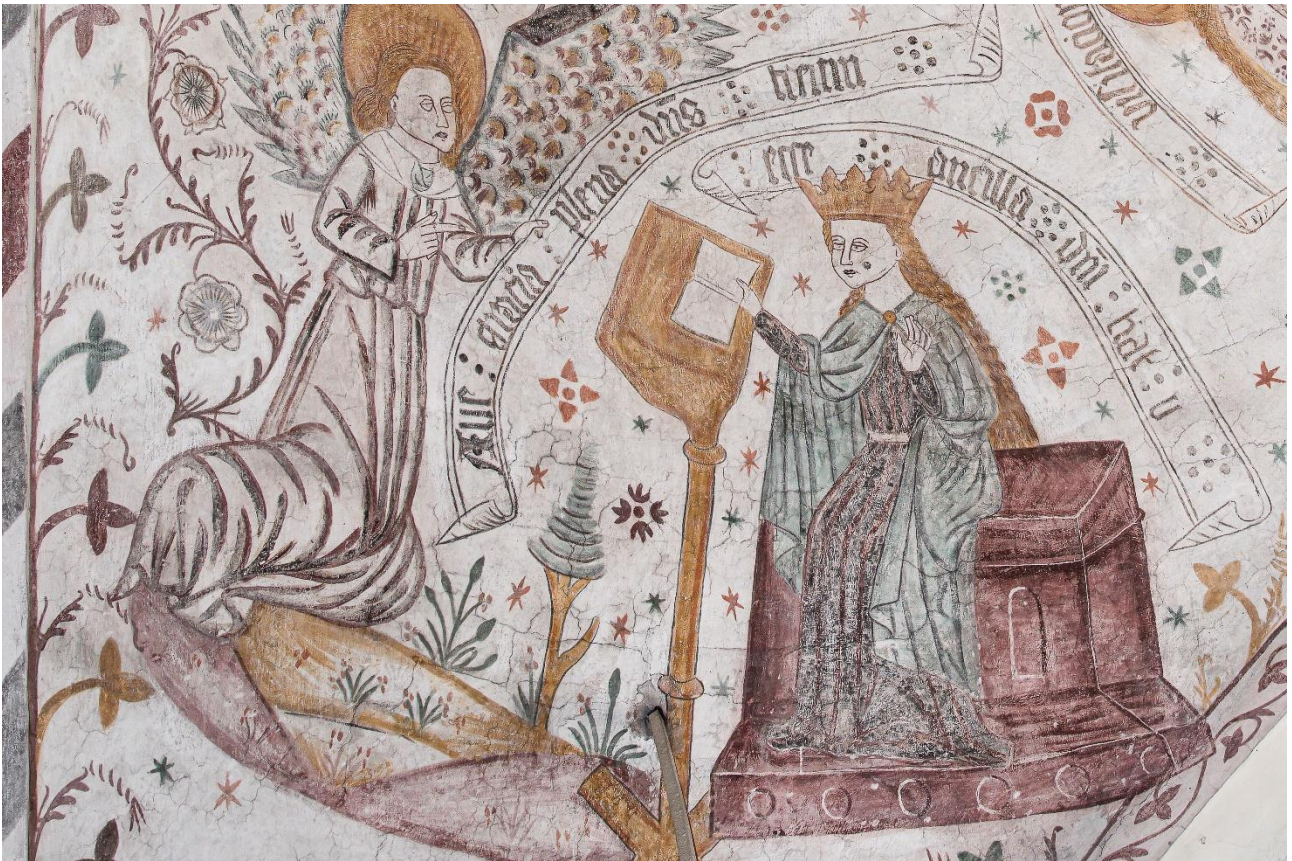 Aue : gracia : plena dns
ecce ancilla : dni : hat : u